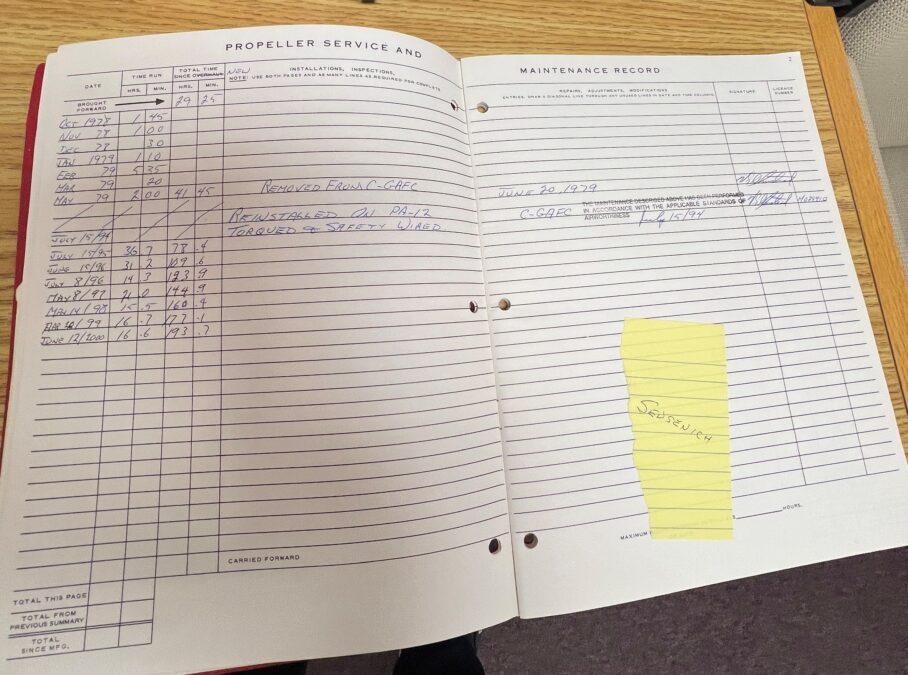 PROPELLER SERVICE AND
MAINTENANCE RECORD
2
DATE
TIME RUN
HRS. MIN.
TOTAL TIME
SINCE OVERHAUL NEW
HRS. MIN.
INSTALLATIONS, INSPECTIONS,
NOTE: USE BOTH PAGES AND AS MANY LINES AS REQUIRED FOR COMPLETE
REPAIRS, ADJUSTMENTS, MODIFICATIONS
ENTRIES, DRAW A DIAGONAL LINE THROUGH ANY UNUSED LINES IN DATE AND TIME COLUMNS
SIGNATURE
LICENCE
NUMBER
BROUGHT
FORWARD 29 25
OCT 1978 1 45
NOV 78 1 00
DEC 78 30
JAN 1979 1 10
FEB 79 5 35
MAR 79 20
MAY 79 2 00 41 45 REMOVED FROM C-GAFC JUNE 20, 1979
REINSTALLED ON PA-12 C-GAFC
THE MAINTENANCE DESCRIBED ABOVE HAS BEEN PERFORMED
IN ACCORDANCE WITH THE APPLICABLE STANDARDS OF
AIRWORTHINESS July 15/94
JULY 15/94 TORQUED & SAFETY WIRED
JULY 15/95 36 .7 78 .4
JUNE 15/96 31 .2 109 .6
JULY 8/96 14 .3 123 .9
MAY 8/97 21 .0 144 .9
MAY 14/98 15 .5 160 .4
16 .7 177 .1
JUNE 12/2000 16 .6 193 .7
SENSENICH
CARRIED FORWARD
MAXIMUM
HOURS.
TOTAL THIS PAGE
TOTAL FROM
PREVIOUS SUMMARY
TOTAL
SINCE MFG.